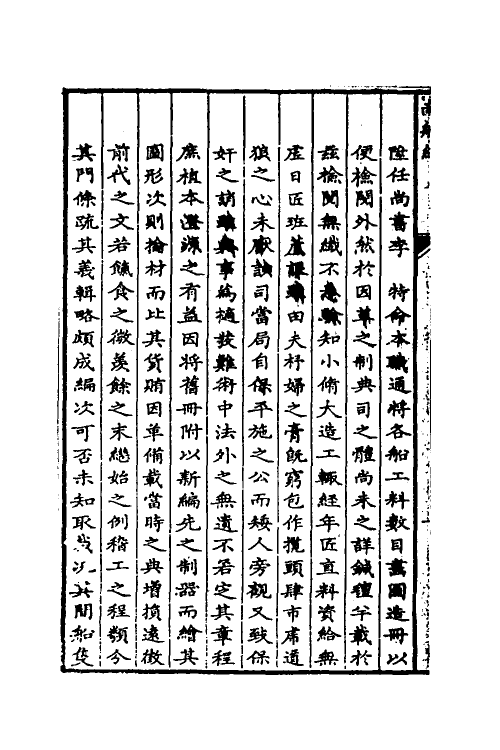 陞任尚書李　特命本職通將各船工料數目畫圖造冊以
便檢閱外然於因革之制典司之體尚未之詳鍼檀午載於
茲檢閱無纖不悉知小脩大造工輒經年匠直料資給無
虛日匠班蘆課田夫杼婦之膏既窮包作攬頭肆市虜道
狼之心未厭該司當局自保平施之公而矮人旁觀又致保
奸之誚事為樋發難術中法外之無遺不若定其章程
庶植本澄源之有益因將舊冊附以新編先之制器而繪其
圖形次則掄材而比其貨賄因单備載當時之典增損遠徵
前代之文若餼食之徵羨餘之末繼始之例稽工之程類今
其門條疏其義輯略頗成編次可否未知取裁況其間船隻